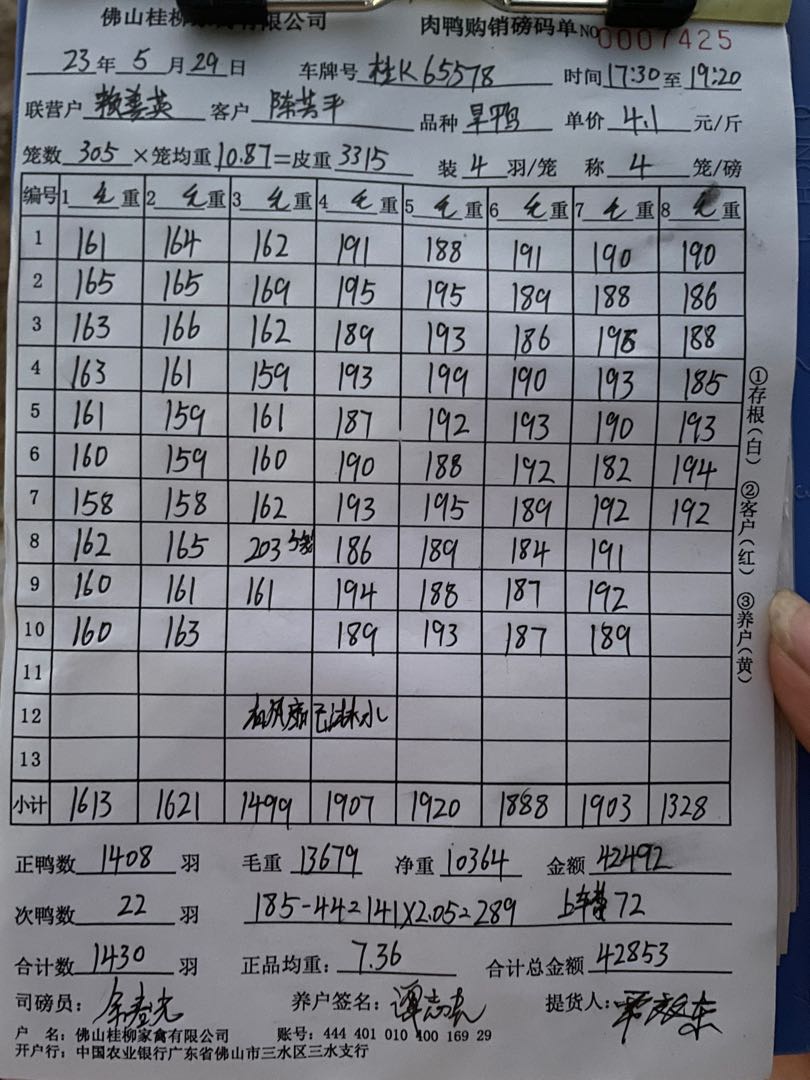 佛山桂柳家禽有限公司 肉鸭购销磅码单 No 0007425
23年 5月 29日 车牌号 桂K65578 时间 17:30 至 19:20
联营户 赖善英 客户 陈芸平 品种 旱鸭 单价 4.1 元/斤
笼数 305 ×笼均重 10.87 =皮重 3315 装 4 羽/笼 称 4 笼/磅
编号 1 毛 重 2 毛 重 3 毛 重 4 毛 重 5 毛 重 6 毛 重 7 毛 重 8 毛 重
1 161 164 162 191 188 191 190 190
2 165 165 169 195 195 189 188 186
3 163 166 162 189 193 186 196 188
4 163 161 159 193 199 190 193 185
5 161 159 161 187 192 193 190 193
6 160 159 160 190 188 192 182 194
7 158 158 162 193 195 189 192 192
8 162 165 203 5笼 186 189 184 191
9 160 161 161 194 188 187 192
10 160 163 189 193 187 189
11
12 有风扇 已淋水
13
小计 1613 1621 1499 1907 1920 1888 1903 1328
正鸭数 1408 羽 毛重 13679 净重 10364 金额 42492
次鸭数 22 羽 185-44=141×2.05=289 上车费72
合计数 1430 羽 正品均重: 7.36 合计总金额 42853
司磅员: 养户签名: 提货人:
户 名: 佛山桂柳家禽有限公司 账号: 444 401 010 400 169 29
开户行: 中国农业银行广东省佛山市三水区三水支行
①存根(白) ②客户(红) ③养户(黄)